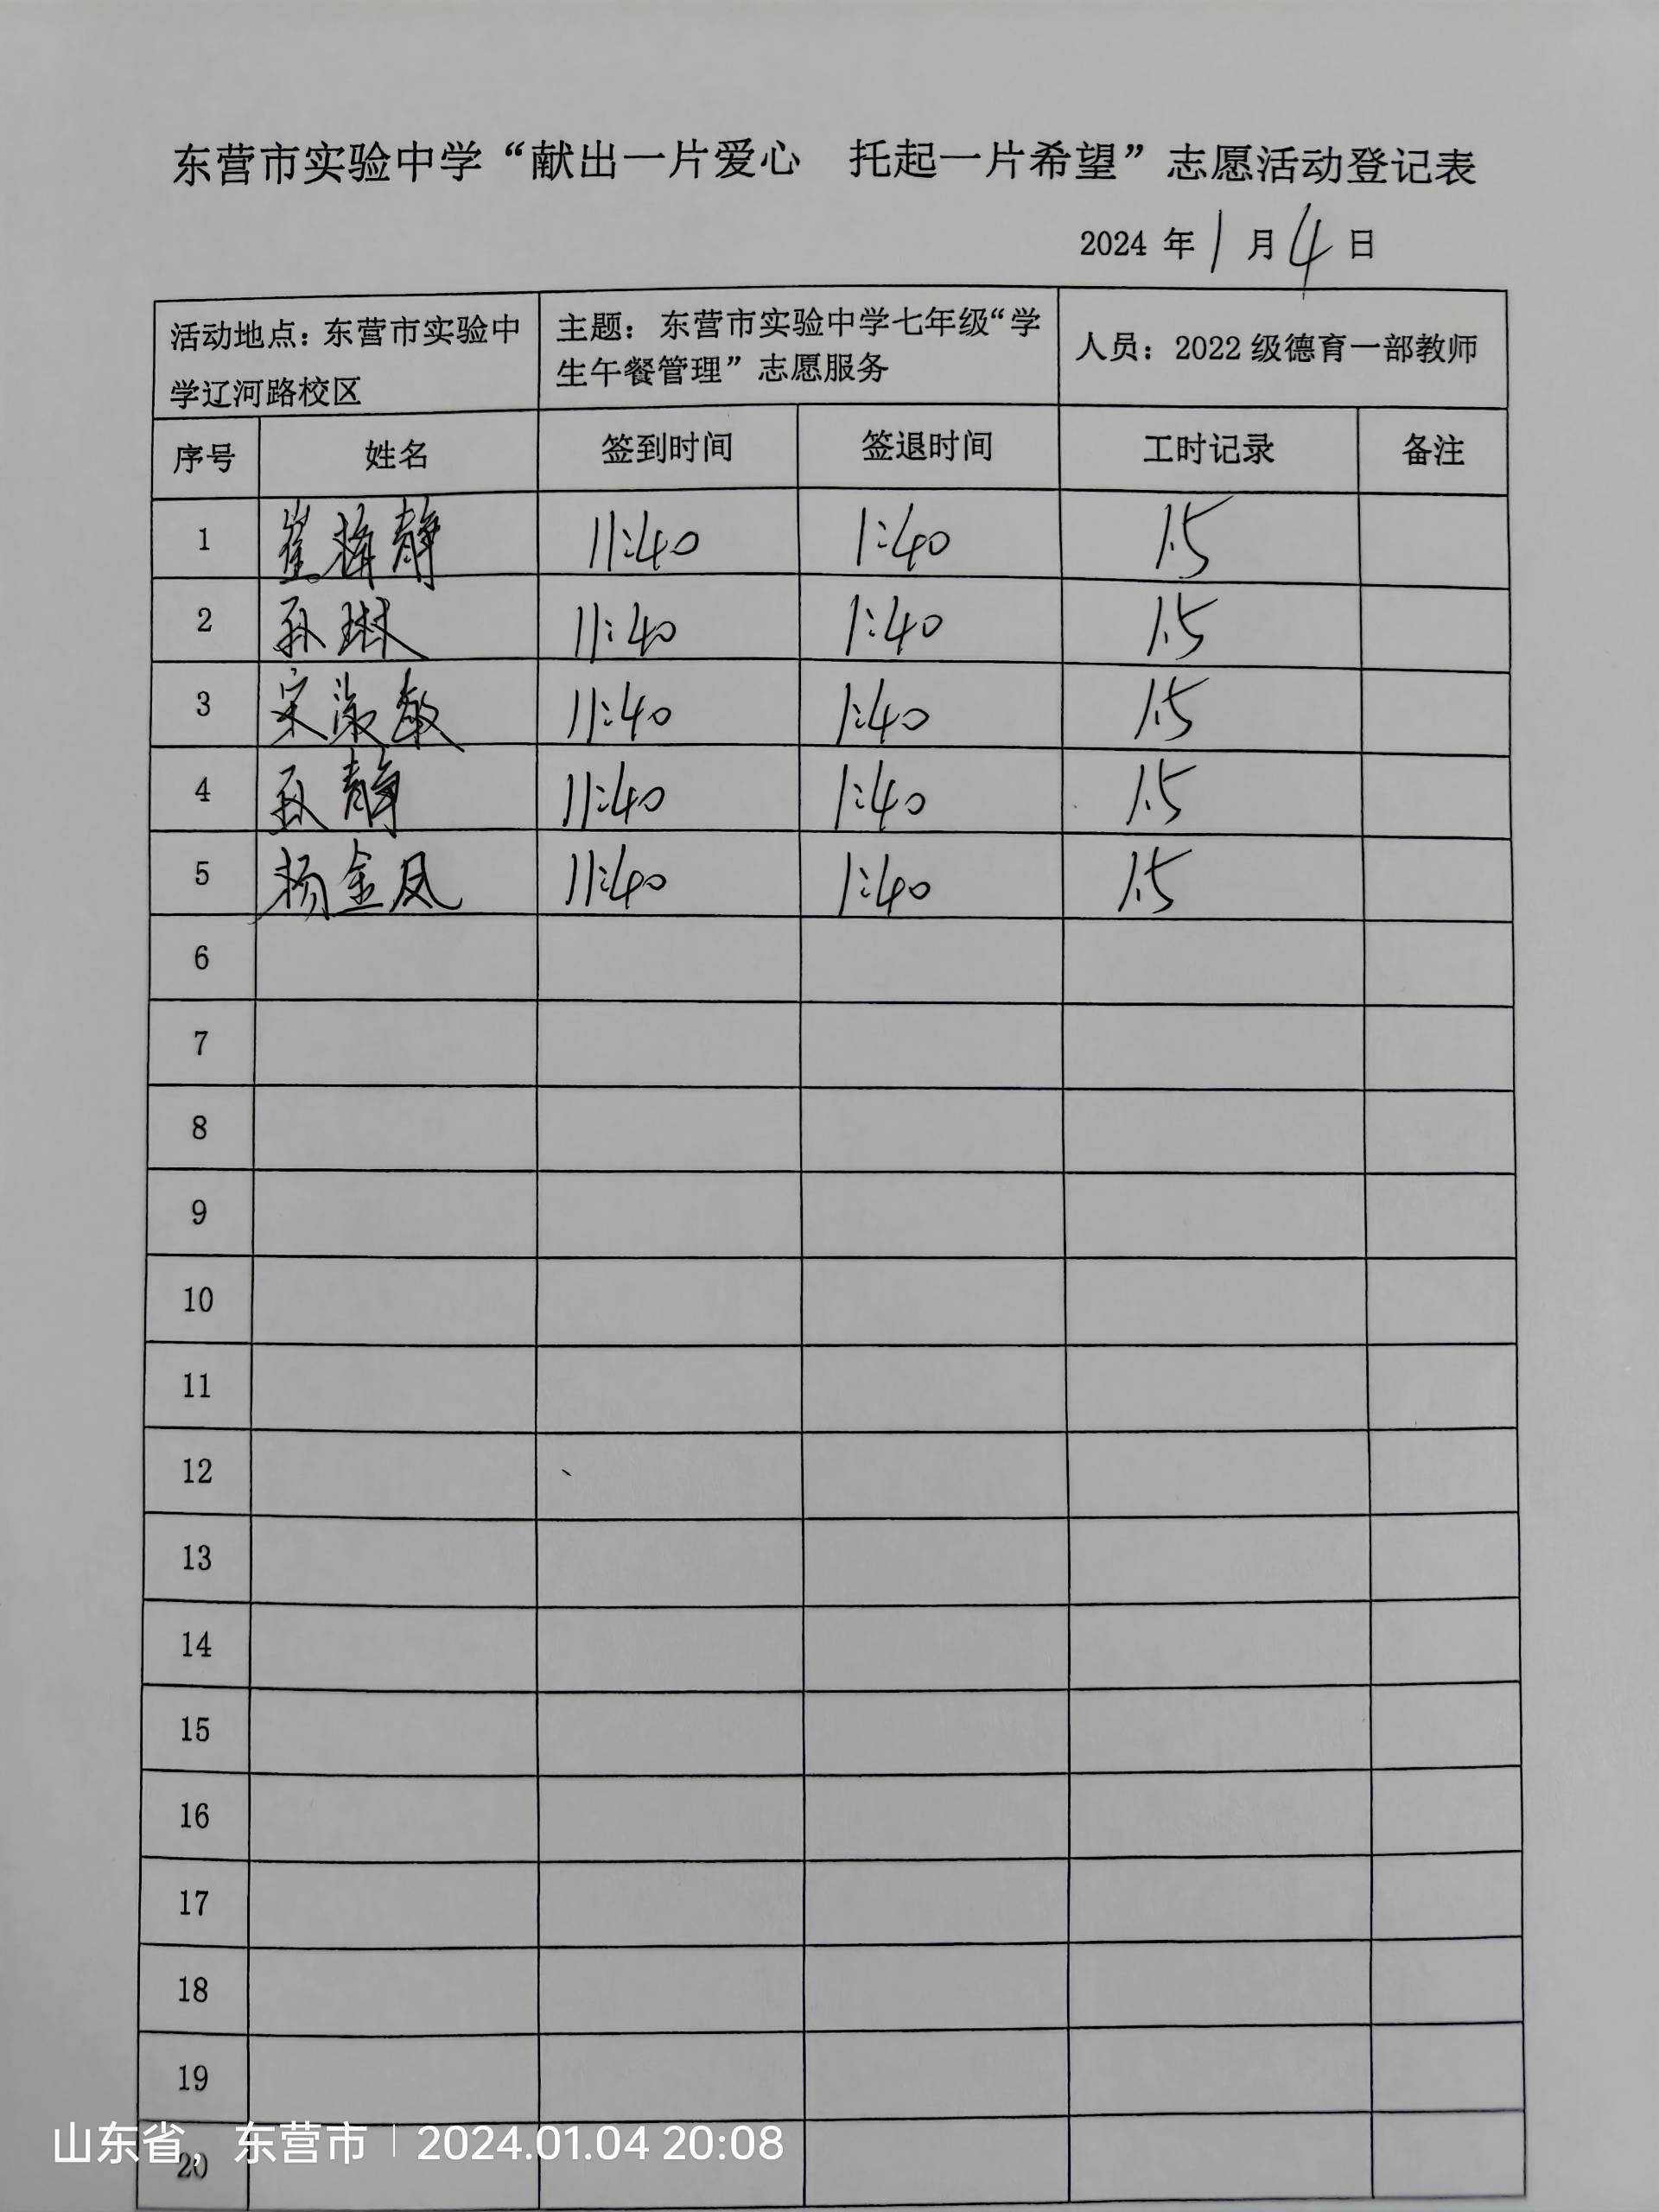 东营市实验中学“献出一片爱心 托起一片希望”志愿活动登记表
2024 年 1 月 4 日
活动地点：东营市实验中
学辽河路校区
主题： 东营市实验中学七年级“学
生午餐管理”志愿服务
人员：2022 级德育一部教师
序号 姓名 签到时间 签退时间 工时记录 备注
1 崔梅静 11:40 1:40 1.5
2 孙琳 11:40 1:40 1.5
3 宋淑敏 11:40 1:40 1.5
4 孙静 11:40 1:40 1.5
5 杨金凤 11:40 1:40 1.5
6
7
8
9
10
11
12
13
14
15
16
17
18
19
20
山东省，东营市 | 2024.01.04 20:08